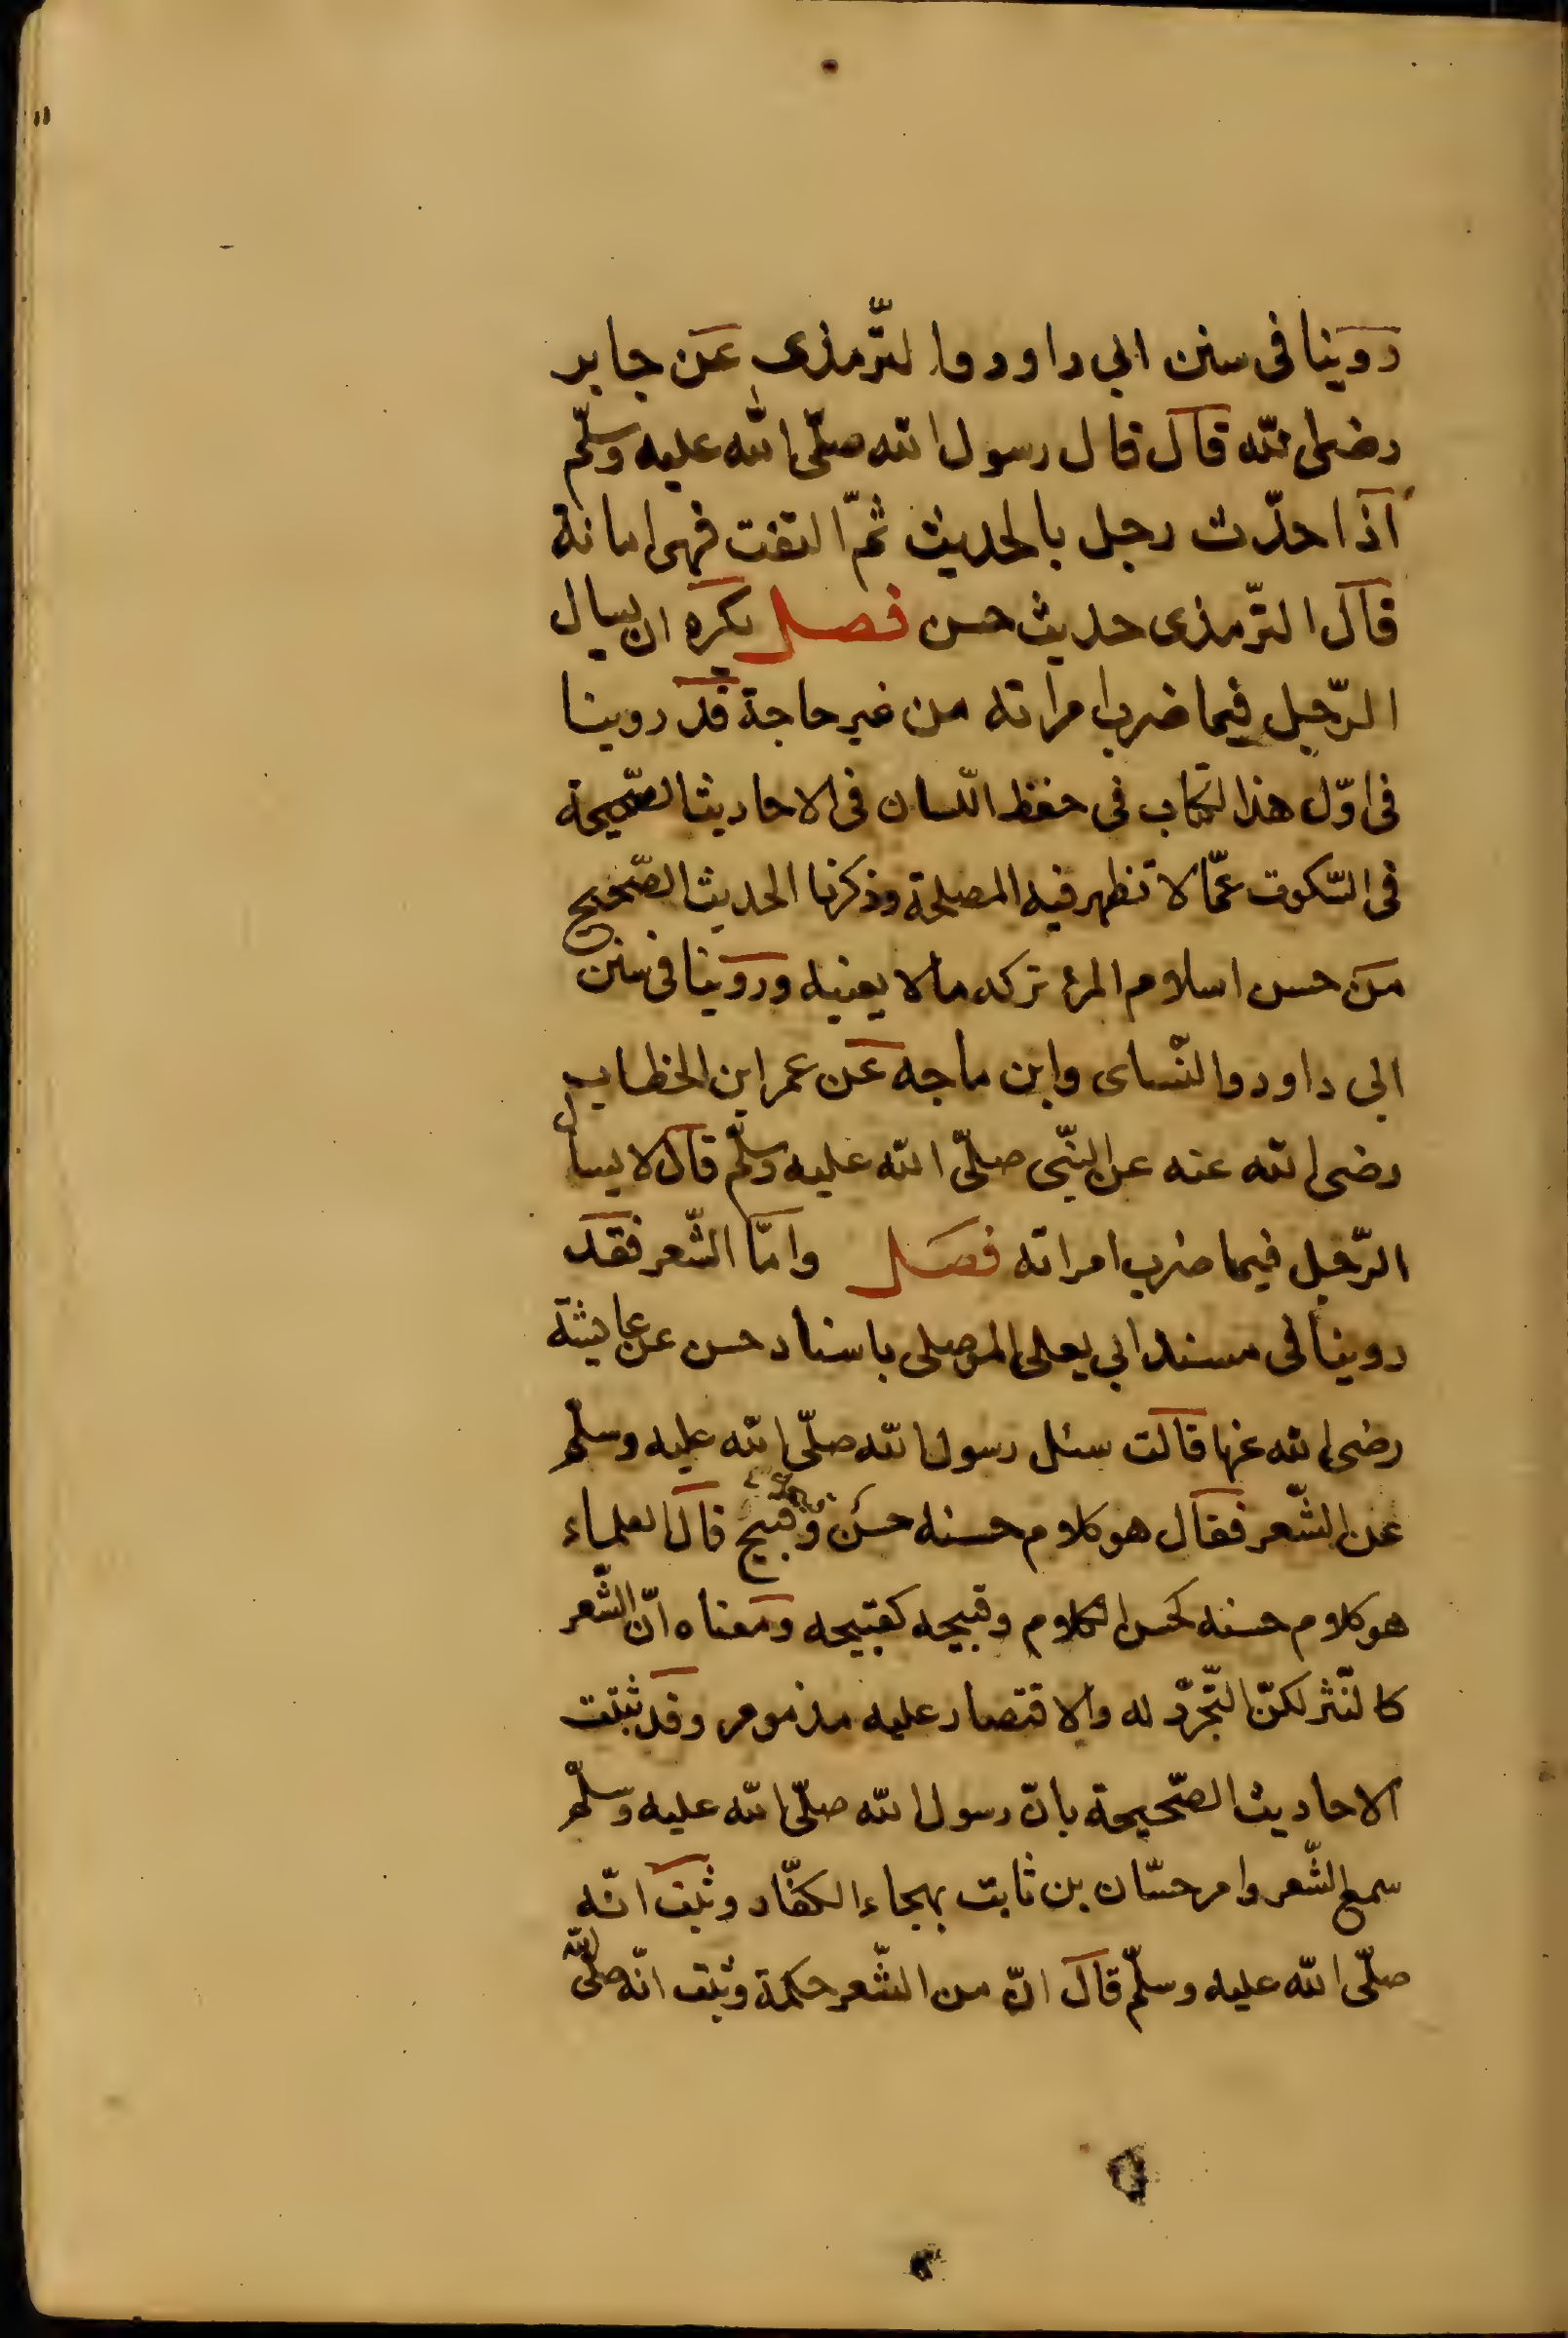 روينا فى سنن ابى داود والتّرمذى عن جابر
رضى الله قال قال رسول الله صلّى الله عليه وسلّم
اذا حدّث رجل بالحديث ثمّ التفت فهى امانة
قال التّرمذى حديث حسن فصل يكره ان يسال
الرّجل فيما ضرب امراته من غير حاجة قد روينا
فى اوّل هذا الكتاب فى حفظ اللّسان فى الاحاديث الصّحيحة
فى السّكوت عمّا لا تظهر فيه المصلحة وذكرنا الحديث الصّحيح
من حسن اسلام المرء تركه ما لا يعنيه وروينا فى سنن
ابى داود والنّساى وابن ماجه عن عمر ابن الخطاب
رضى الله عنه عن النّبى صلّى الله عليه وسلّم قال لا يسأل
الرّجل فيما ضرب امراته فصل وامّا الشّعر فقد
روينا فى مسند ابى يعلى الموصلى باسناد حسن عن عايشة
رضى الله عنها قالت سئل رسول الله صلّى الله عليه وسلّم
عن الشّعر فقال هو كلام حسنه حسن وقبيحه قبيح قال العلماء
هو كلام حسنه كحسن الكلام وقبيحه كقبيحه ومعناه انّ الشّعر
كالنّثر لكنّ التّجرّد له والاقتصار عليه مذموم وقد ثبتت
الاحاديث الصّحيحة بانّ رسول الله صلّى الله عليه وسلّم
سمع الشّعر وامر حسّان بن ثابت بهجاء الكفّار وثبت انّه
صلّى الله عليه وسلّم قال انّ من الشّعر حكمة وثبت انّه صلّى الله